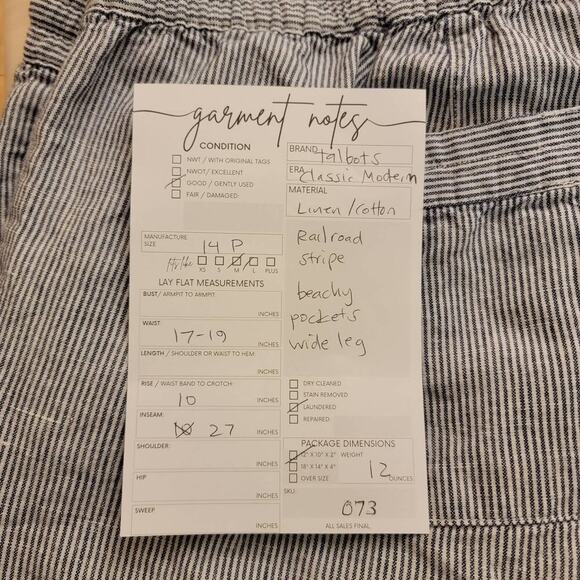 garment notes
CONDITION
NWT / WITH ORIGINAL TAGS
NWOT/ EXCELLENT
GOOD / GENTLY USED
FAIR / DAMAGED:
MANUFACTURE
SIZE
14 P
fits like
XS S M L PLUS
LAY FLAT MEASUREMENTS
BUST/ ARMPIT TO ARMPIT:
INCHES
WAIST:
17-19
INCHES
LENGTH / SHOULDER OR WAIST TO HEM:
INCHES
RISE / WAIST BAND TO CROTCH:
10 INCHES
INSEAM:
27 INCHES
SHOULDER:
INCHES
HIP
INCHES
SWEEP
INCHES
BRAND Talbots
ERA Classic Modern
MATERIAL
Linen / Cotton
Railroad
stripe
beachy
pockets
wide leg
DRY CLEANED
STAIN REMOVED
LAUNDERED
REPAIRED:
PACKAGE DIMENSIONS
12" X 10" X 2" WEIGHT
18" X 14" X 4"
12 OUNCES
OVER SIZE
SKU:
073
ALL SALES FINAL